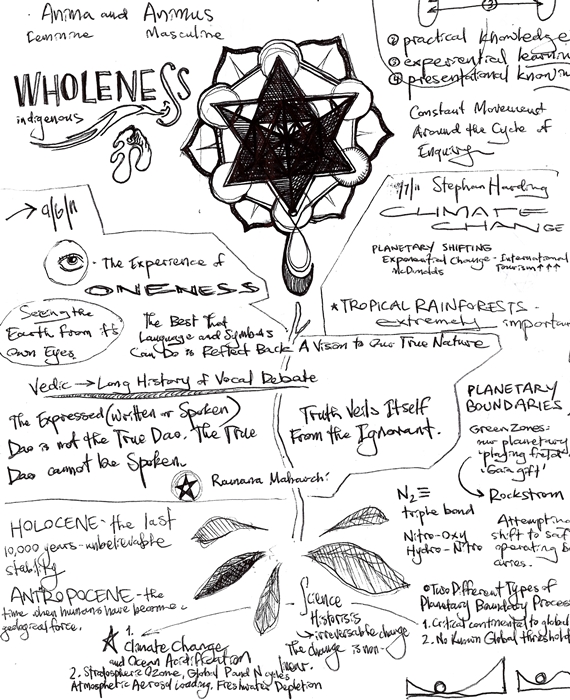 · Anima and Animus
Feminine Masculine
WHOLENESS
indigenous
② practical knowledge
③ experiential learnin
④ presentational knowin
Constant Movement
Around the Cycle of
Enquiry
→ 9/6/11
9/7/11 Stephan Harding
CLIMATE
CHANGE
PLANETARY SHIFTING
Exponential Change - International
McDonalds Tourism ↑↑↑
* TROPICAL RAINFORESTS -
extremely importan
· The Experience of
ONENESS
Seeing the
Earth from its
Own Eyes
The Best That
Language and Symbols
Can Do is Reflect Back A Vision to Our True Nature
Vedic → Long History of Vocal Debate
The Expressed (Written or Spoken)
Dao is not the True Dao. The True
Dao cannot be Spoken.
Truth Veils Itself
From the Ignorant.
Ramana Maharshi
PLANETARY
BOUNDARIES
Green Zones -
our planetary
'playing field'
'Gaia gift'
→ Rockstrom
N₂ ≡
triple bond
Nitro-Oxy
Hydro-Nitro
Attempting
shift to saf
operating b
HOLOCENE - the last
10,000 years - unbelievable
stability
ANTROPOCENE - the
time when humans have become a
geological force.
1.
Climate Change
and Ocean Acidification
2. Stratospheric Ozone, Global P and N cycles,
Atmospheric Aerosol Loading, Freshwater Depletion
Science
→ irreversable change
The change is non-
linear.
Two Different Types of
Planetary Boundary Process
1. Critical continental to global
2. No Known Global threshold